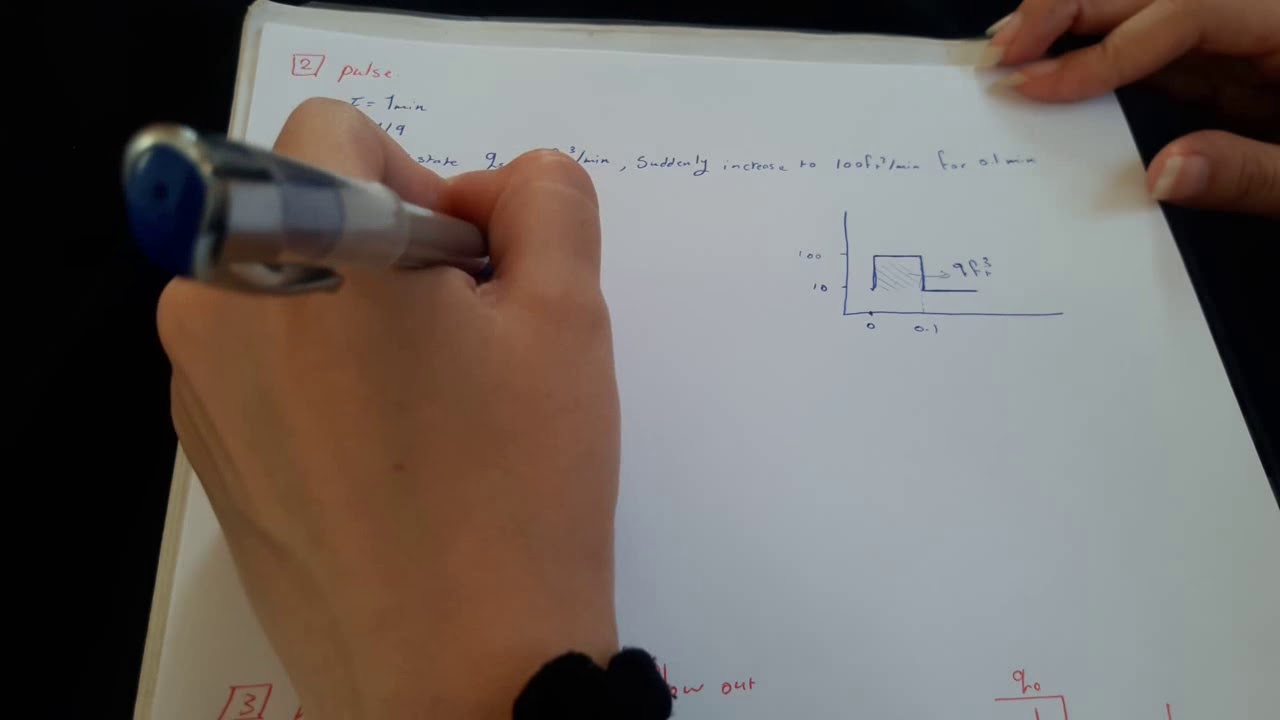 2 pulse
τ = 1min
1/9
state q ³/min, Suddenly increase to 100ft³/min for 0.1 min
100
9ft³
10
0 0.1
3 low out
q₀